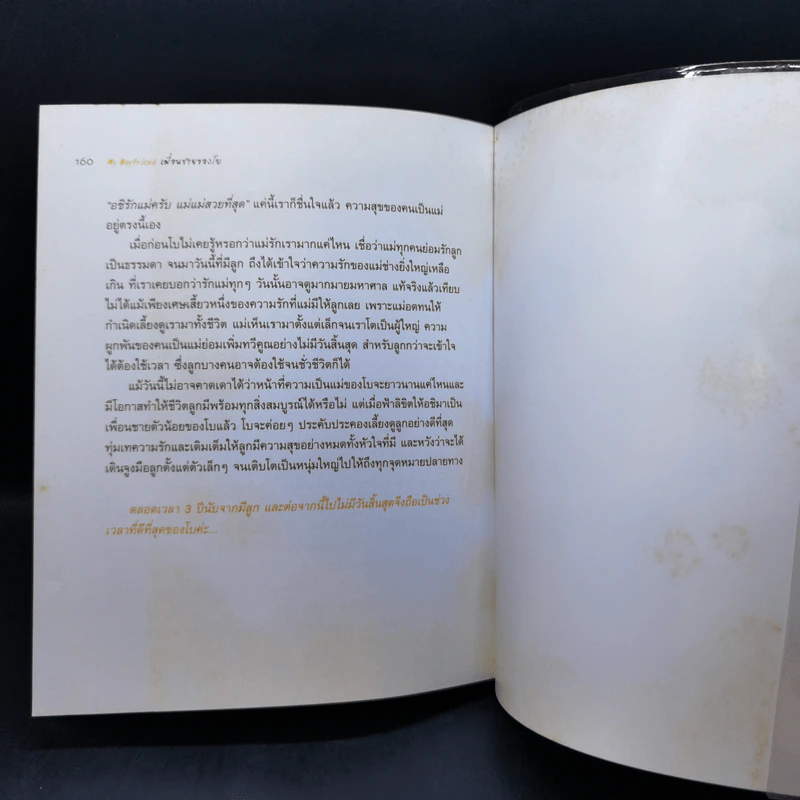 160 My Boyfriend เพื่อนชายของโบ
"อชิรักแม่ครับ แม่แม่สวยที่สุด" แค่นี้เราก็ชื่นใจแล้ว ความสุขของคนเป็นแม่
อยู่ตรงนี้เอง
เมื่อก่อนโบไม่เคยรู้หรอกว่าแม่รักเรามากแค่ไหน เชื่อว่าแม่ทุกคนย่อมรักลูก
เป็นธรรมดา จนมาวันนี้ที่มีลูก ถึงได้เข้าใจว่าความรักของแม่ช่างยิ่งใหญ่เหลือ
เกิน ที่เราเคยบอกว่ารักแม่ทุกๆ วันนั้นอาจดูมากมายมหาศาล แท้จริงแล้วเทียบ
ไม่ได้แม้เพียงเศษเสี้ยวหนึ่งของความรักที่แม่มีให้ลูกเลย เพราะแม่อดทนให้
กำเนิดเลี้ยงดูเรามาทั้งชีวิต แม่เห็นเรามาตั้งแต่เล็กจนเราโตเป็นผู้ใหญ่ ความ
ผูกพันของคนเป็นแม่ย่อมเพิ่มทวีคูณอย่างไม่มีวันสิ้นสุด สำหรับลูกกว่าจะเข้าใจ
ได้ต้องใช้เวลา ซึ่งลูกบางคนอาจต้องใช้จนชั่วชีวิตก็ได้
แม้วันนี้ไม่อาจคาดเดาได้ว่าหน้าที่ความเป็นแม่ของโบจะยาวนานแค่ไหนและ
มีโอกาสทำให้ชีวิตลูกมีพร้อมทุกสิ่งสมบูรณ์ได้หรือไม่ แต่เมื่อฟ้าลิขิตให้อชิมาเป็น
เพื่อนชายตัวน้อยของโบแล้ว โบจะค่อยๆ ประคับประคองเลี้ยงดูลูกอย่างดีที่สุด
ทุ่มเทความรักและเติมเต็มให้ลูกมีความสุขอย่างหมดทั้งหัวใจที่มี และหวังว่าจะได้
เดินจูงมือลูกตั้งแต่ตัวเล็กๆ จนเติบโตเป็นหนุ่มใหญ่ไปให้ถึงทุกจุดหมายปลายทาง
ตลอดเวลา 3 ปีนับจากมีลูก และต่อจากนี้ไปไม่มีวันสิ้นสุดจึงถือเป็นช่วง
เวลาที่ดีที่สุดของโบค่ะ...